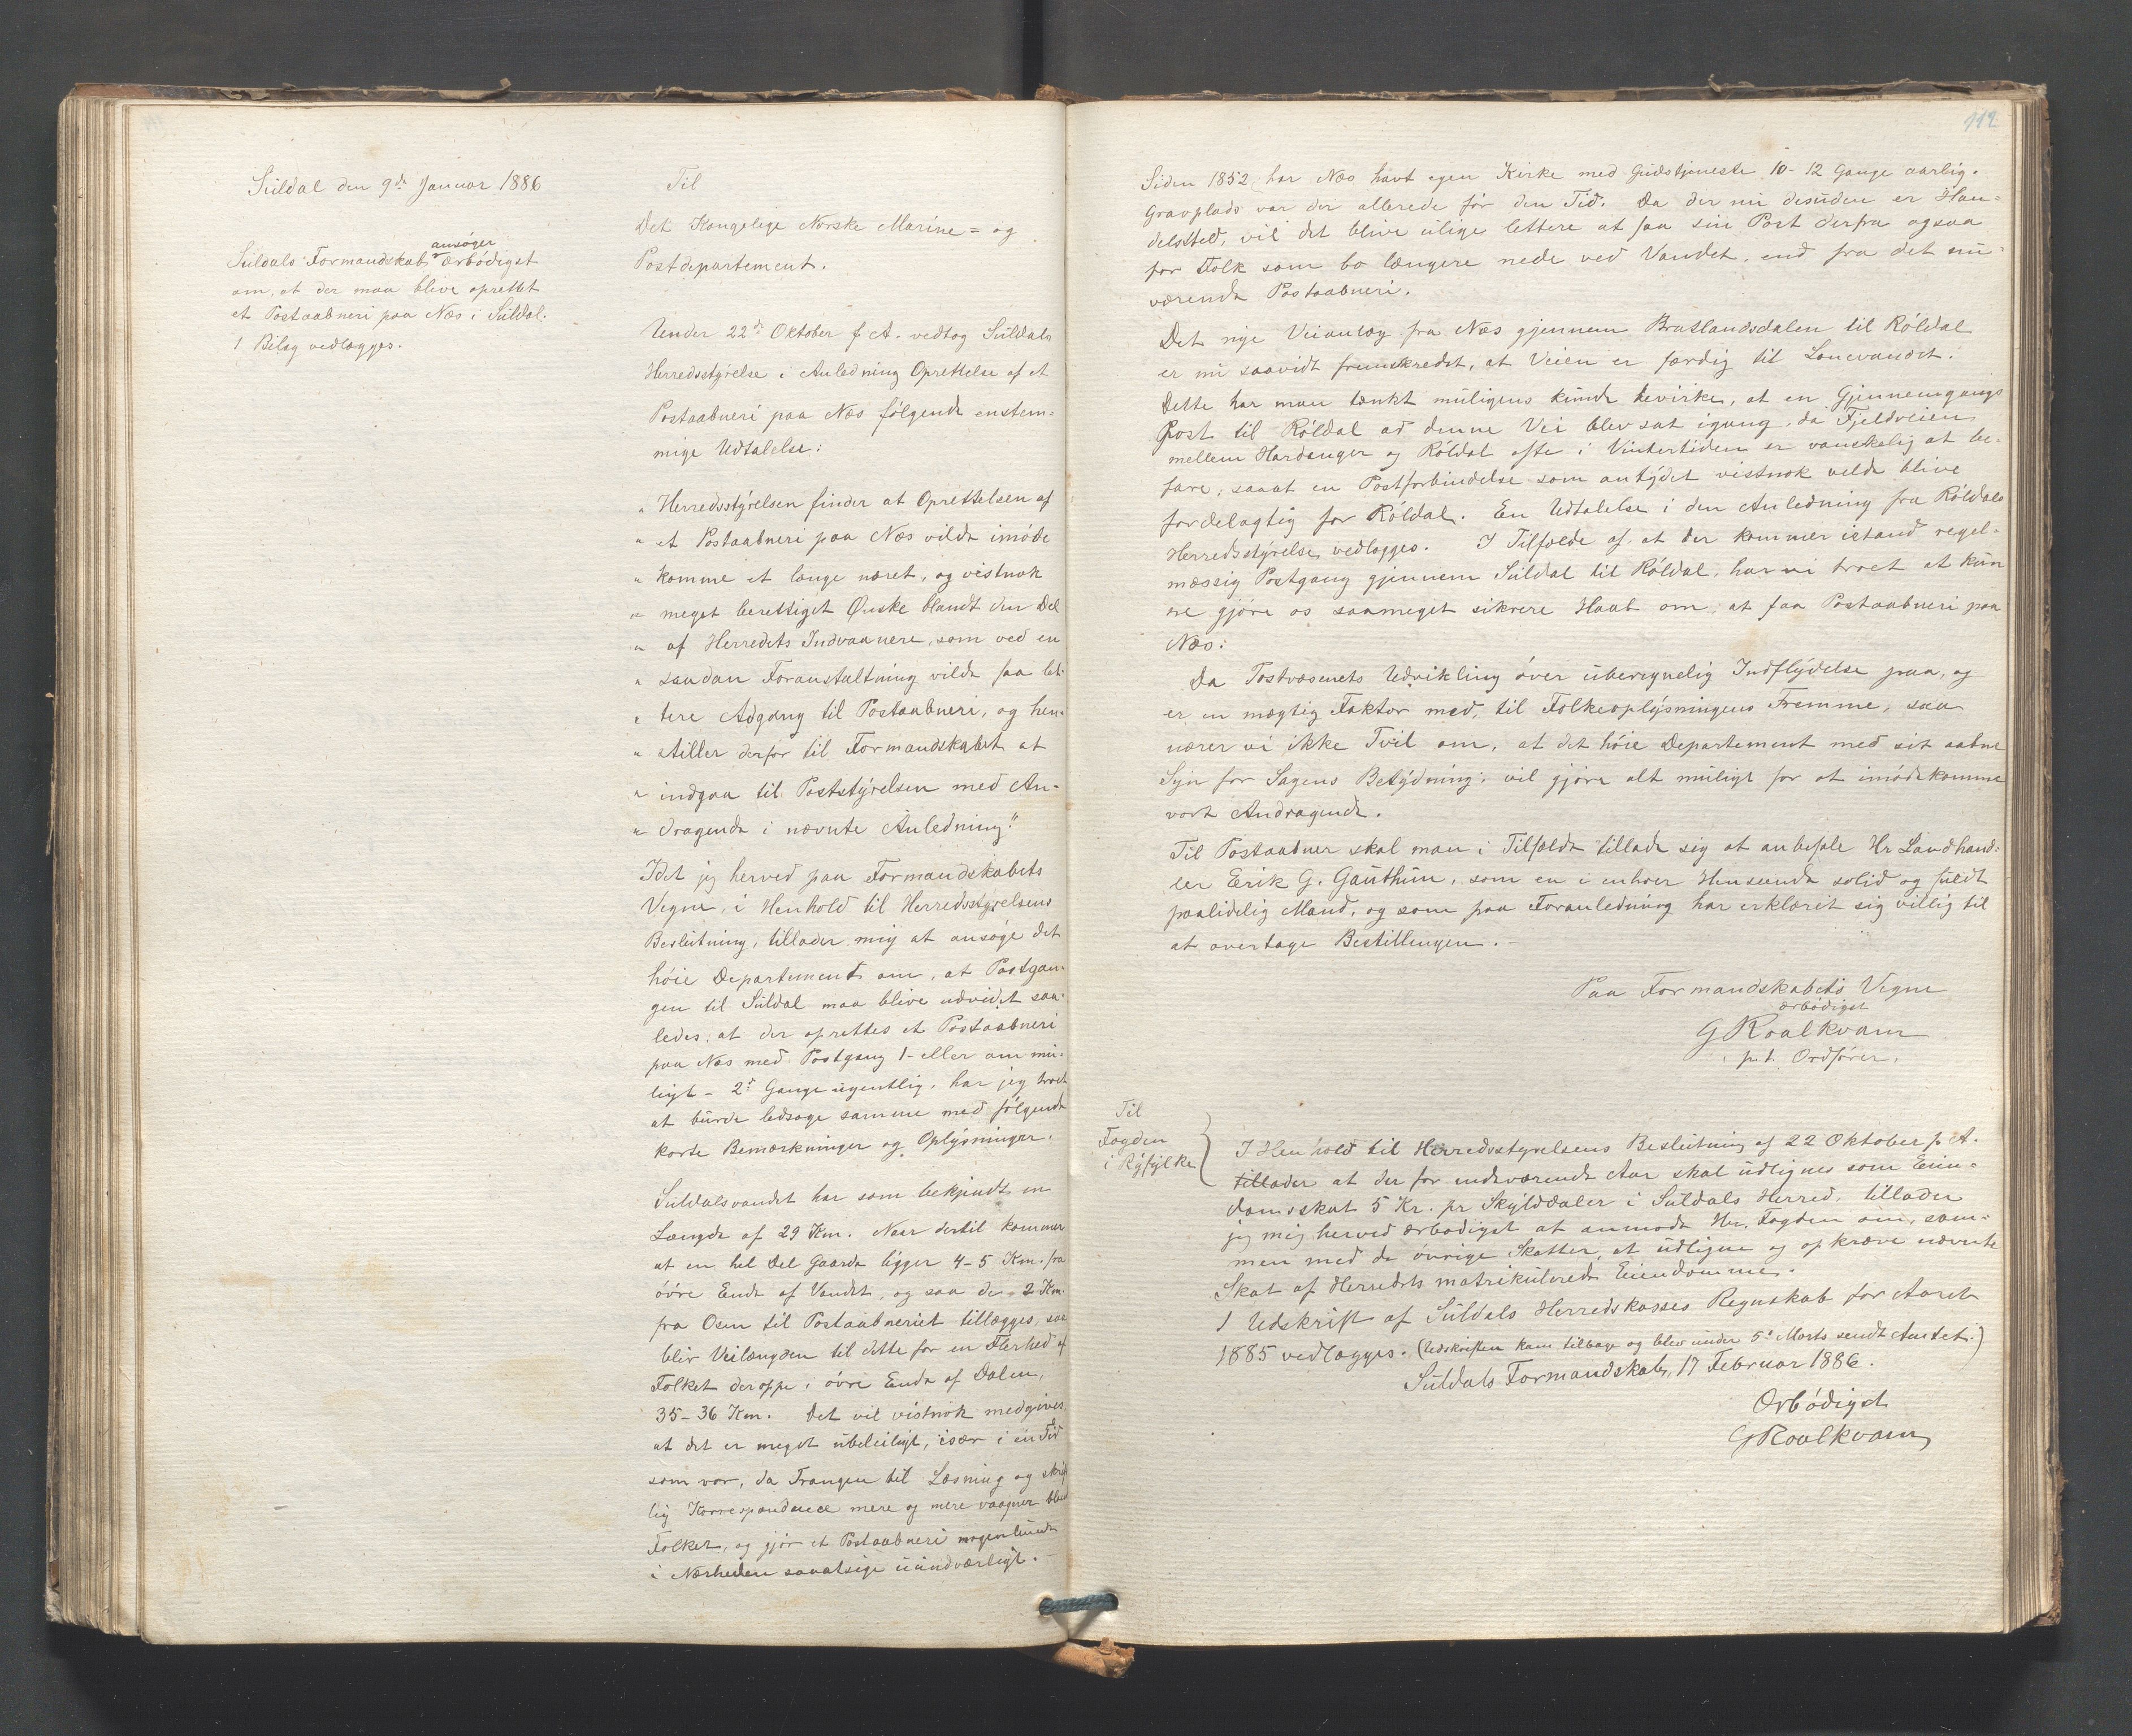 Suldal den 9de Januar 1886
ansöger
Suldals Formandskab ærbödigst
om, at der maa blive oprettet
et Postaabneri paa Næs i Suldal.
1 Bilag vedlægges.
Til
Det Kongelige Norske Marine- og
Postdepartement.
Under 22de Oktober f. A. vedtog Suldals
Herredsstyrelse i Anledning Oprettelse af et
Postaabneri paa Næs følgende enstem-
mige Udtalelse:
" Herredsstyrelsen finder at Oprettelsen af
" et Postaabneri paa Næs vilde imøde
" komme et længe næret, og vistnok
" meget berettiget Ønske blandt den Del
" af Herredets Indvaanere, som ved en
" saadan Foranstaltning vilde faa let-
" tere Adgang til Postaabneri, og hen-
" stiller derfor til Formandskabet at
" indgaa til Poststyrelsen med An-
" dragende i nævnte Anledning."
Idet jeg herved paa Formandskabets
Vegne, i Henhold til Herredsstyrelsens
Beslutning, tillader mig at ansøge det
høie Departement om, at Postgan-
gen til Suldal maa blive udvidet saa-
ledes, at der oprettes et Postaabneri
paa Næs med Postgang 1- eller om mu-
ligt - 2de Gange ugentlig, har jeg troet
at burde ledsage samme med følgende
korte Bemærkninger og Oplysninger.
Suldalsvandet har som bekjendt en
Længde af 29 Km. Naar dertil kommer
at en hel Del Gaarde ligger 4-5 Km. fra
øvre Ende af Vandet, og saa de 2 Km.
fra Osen til Postaabneriet tillægges, saa
blir Veilængden til dette for en Flerhed af
Folket deroppe i øvre Ende af Dalen,
35-36 Km. Det vil vistnok medgives,
at det er meget ubeleiligt, især i en Tid
som vor, da Trangen til Læsning og skrift
lig Korrespondence mere og mere vaagner blandt
Folket, og gjør et Postaabneri nogenlunde
i Nærheden saaatsige uundværligt.
112
Siden 1852 har Næs havt egen Kirke med Gudstjeneste 10-12 Gange aarlig.
Gravplads var der allerede før den Tid. Da der nu desuden er Han-
delssted, vil det blive ulige lettere at faa sin Post derfra ogsaa
for Folk som bo længere nede ved Vandet, end fra det nu-
værende Postaabneri.
Det nye Veianlæg fra Næs gjennem Bratlandsdalen til Røldal
er nu saavidt fremskredet, at Veien er færdig til Lonevandet.
Dette har man tænkt muligens kunde bevirke, at en Gjennemgangs
Post til Røldal ad denne Vei blev sat igang, da Fjeldveien
mellem Hardanger og Røldal ofte i Vintertiden er vanskelig at be-
fare, saaat en Postforbindelse som antydet vistnok vilde blive
fordelagtig for Røldal. En Udtalelse i den Anledning fra Røldals
Herredsstyrelse vedlægges. I Tilfælde af at der kommer istand regel-
mæssig Postgang gjennem Suldal til Røldal, har vi troet at kun
ne gjøre os saameget sikrere Haab om, at faa Postaabneri paa
Næs.
Da Postvæsenets Udvikling øver uberegnelig Indflydelse paa, og
er en mægtig Faktor med, til Folkeoplysningens Fremme, saa
nærer vi ikke Tvil om, at det høie Departement med sit aabne
Syn for Sagens Betydning, vil gjøre alt muligt for at imødekomme
vort Andragende.
Til Postaabner skal man i Tilfælde tillade sig at anbefale Hr Landhand-
ler Erik G. Gauthun, som en i enhver Henseende solid og fuldt
paalidelig Mand, og som paa Foranledning har erklæret sig villig til
at overtage Bestillingen.-
Paa Formandskabets Vegne
ærbödigst
G Roalkvam
p. t. Ordfører.
Til
Fogden
i Ryfylke
I Henhold til Herredsstyrelsens Beslutning af 22 Oktober f. A.
tillader at der for indeværende Aar skal udlignes som Eien-
domsskat 5 Kr. pr Skylddaler i Suldals Herred, tillader
jeg mig herved ærbödigst at anmode Hr. Fogden om, sam-
men med de övrige Skatter, at udligne og opkræve nævnte
Skat af Herredets matrikulerede Eiendomme.
1 Udskrift af Suldals Herredskasses Regnskab for Aaret
1885 vedlægges. (Udskriften kam tilbage og blev under 5te Marts sendt Amtet.)
Suldals Formandskab, 17 Februar 1886.
Ærbödigst
G Roalkvam